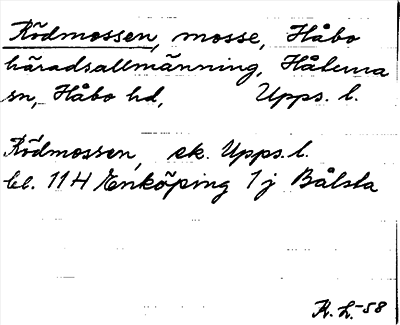 Rödmossen, mosse, Håbo
häradsallmänning, Håtuna
sn, Håbo hd, Upps. l.
Rödmossen, ek. Upps. l.
bl. 11H Enköping 1j Bålsta
R. L. -58